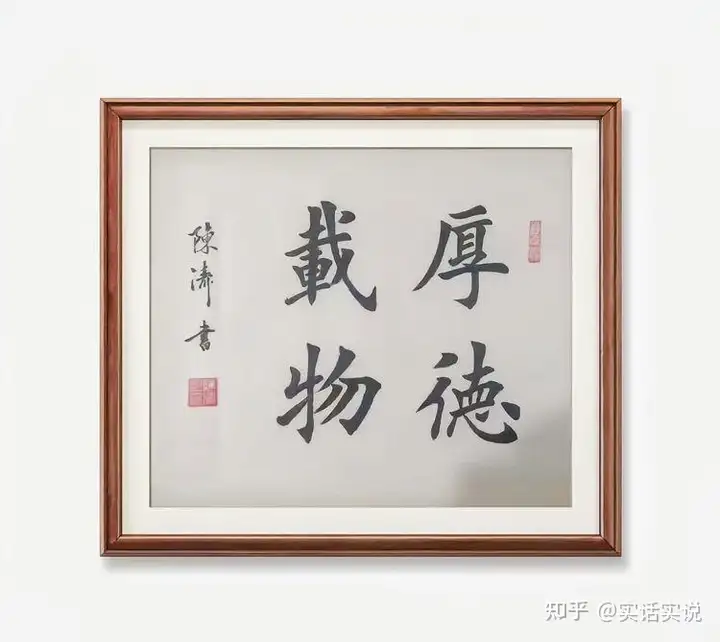 厚德
載物
陳濤書
知乎 @实话实说